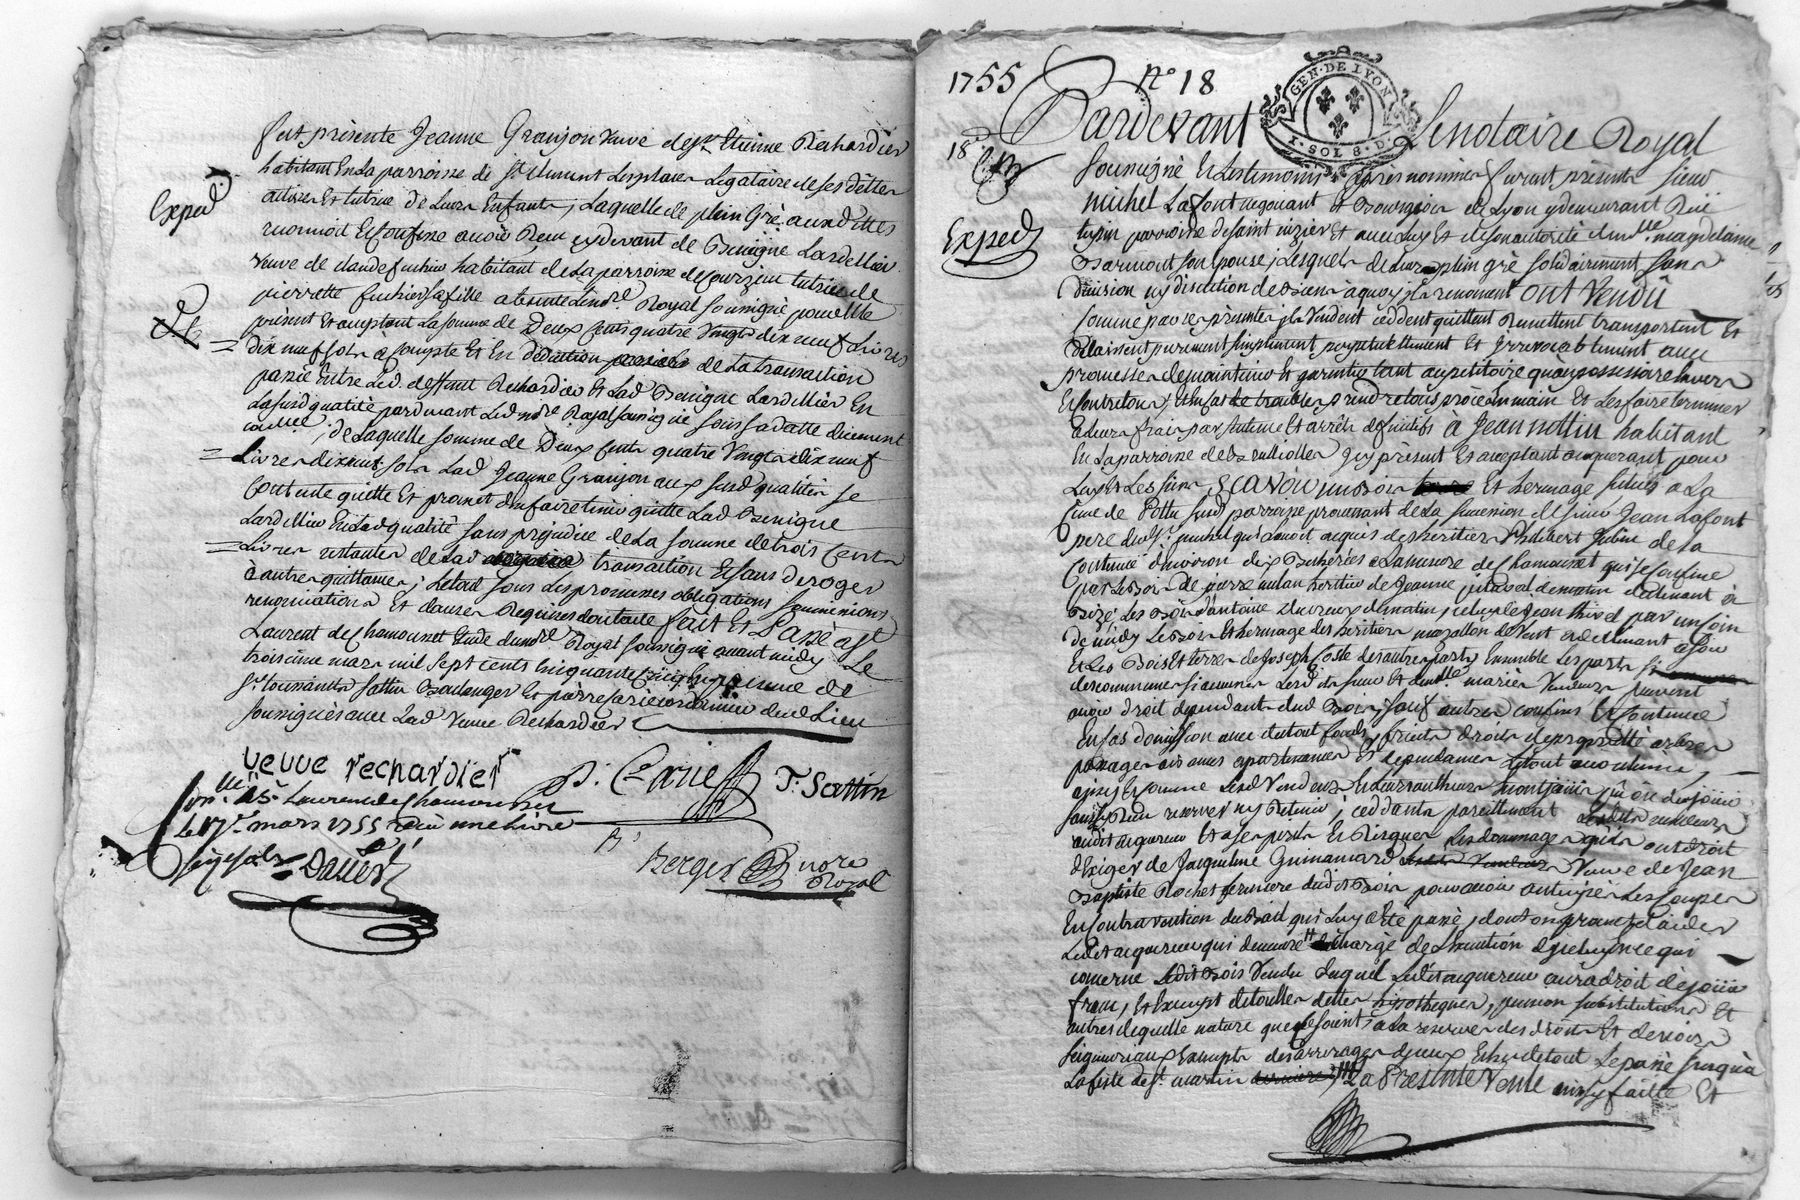 fut présente Jeanne Granjon veuve de sr. Etienne Rechardier
habitant En La parroisse de st. Clement Les places Legataire de ses dettes
actives Et tutrice De Leurs Enfants, Laquelle de plein Gré auxd. ttes
reconnoit Et Confesse avoir Reçu cydevant de Benigne Lardellier
veuve de claude fuchier habitant de La parroisse de Courzieu tutrice de
pierrette fuchier sa fille absente Le nore. Royal soussigné pour Elle
présent Et acceptant La somme de Deux Cents quatre Vingts dix neuf Livres
Dix neuf sols à compte Et En déduction de La transaction
passée Entre Led. deffunt Rechardier Et Lad. Benigne Lardellier En
La susd. qualité pardevant Led. nore. Royal soussigné sous sa datte dûement
; de Laquelle somme de Deux Cents quatre Vingts dix neuf
Livres dix neuf sols Lad. Jeanne Granjon aux susd. qualités se
Contente quitte Et promet En faire tenir quitte Lad. Benigne
Lardellier En Lad. qualité sans préjudice de La somme de trois Cents
Livres restantes de Lad. transaction Et sans deroger
à autres quittances; Le tout sous Les promesses obligations soumissions
renonciations Et clauses Requises dont acte fait Et Passé à st.
Laurent de Chamousset Etude dud. nore. Royal soussigné avant midy Le
troisieme mars mil sept cents cinquante cinq En présence de
sr. toussaints sattin Boulanger Et pierre carrie cordonnier dud. Lieu
soussignés avec Lad. Veuve Rechardier
Exped.
veuve rechardier
P. Carrie
T. Sattin
Conlle. à St. Laurent de chamousset
Le 17e. mars 1755 Reçu
Berger nore
Royal
1755
No 18
GEN. DE LYON
1. SOL 8. D.
18
Exped.
Pardevant Le notaire Royal
soussigné Et Les temoins après nommés furent présents sieur
michel Lafont negotiant Et Bourgeois de Lyon y demeurant Rüe
tupin parroisse de saint nizier Et avec luy Et de son autorité demlle. magdelaine
son Epouse, Lesquels de Leur plein gré solidairement sans
division ny discution de Biens à quoy ils renoncent ont Vendü
comme par ces présentes ils Vendent ceddent quittent Remettent transportent Et
Délaissent purement simplement perpetuellement Et Irrevocablement avec
promesse de maintenir Et garantir tant au petitoire qu'au possessoire Envers
Et contre tous, Et En cas de troubles prendre tous procès En main Et Les faire terminer
à Leurs frais par sentence Et arrêts definitifs à Jean nottin habitant
En La parroisse de Brullioles icy présent Et acceptant acquerant pour
Luy Et Les siens SCAVOIR un Bois Et hermage situés à La
Cime de Pottu susd. parroisse provenant de La succession de sieur Jean Lafont
pere dud. sr. michel qui L'avoit acquis des heritiers Philibert de La
Contenue d'environ dix Bicherées à La mesure de Chamousset qui se Confine
par Le Bois de pierre heritier de Jeanne de matin declinant à
Bize, Les Bois d'antoine de matin, celuy de Jean par un coin
de midy Le Bois Et hermage des heritiers mazallon de Vent declinant à soir
Et Les Bois Et terres de Joseph Coste des autres parts Ensemble Les parts
des communes si aucunes Lesdits sieur Et demlle. mariés Vendeurs peuvent
avoir droit dependants dud. Bois, sauf autres confins Et Contenue
En cas d'omission avec de tout fonds, fruits droits de proprieté arbres
passages aisances appartenances Et dependances Le tout au continu,
ainsy Et comme Lesd. Vendeurs Et Leurs autheurs En ont joüi pû ou dû joüir
sans Rien reserver ny Retenir; ceddants pareillement Lesdits vendeurs
audit acquereur Et à ses perils Et Risques Les dommages qu'ils ont droit
d'Exiger de Jacqueline Guinamard Veuve de Jean
Baptiste Rochet fermiere dudit Bois pour avoir anticipé Les Coupes
En Contravention du Bail qui Luy a Eté passé, dont on promet d'aider
Ledit acquereur qui demeure chargé de L'Execution d'iceluy En ce qui
concerne Ledit Bois Vendu duquel Ledit acquereur aura droit de joüir
franc, Et Exempt de toutes dettes hipotheques, pension substitutions Et
autres de quelle nature que ce soient, à La reserve des droits Et devoirs
seigneuriaux Exempts des arrerages d'iceux Echus de tout Le passé jusqu'à
La fête de st. martin La Presente Vente ainsy faitte Et